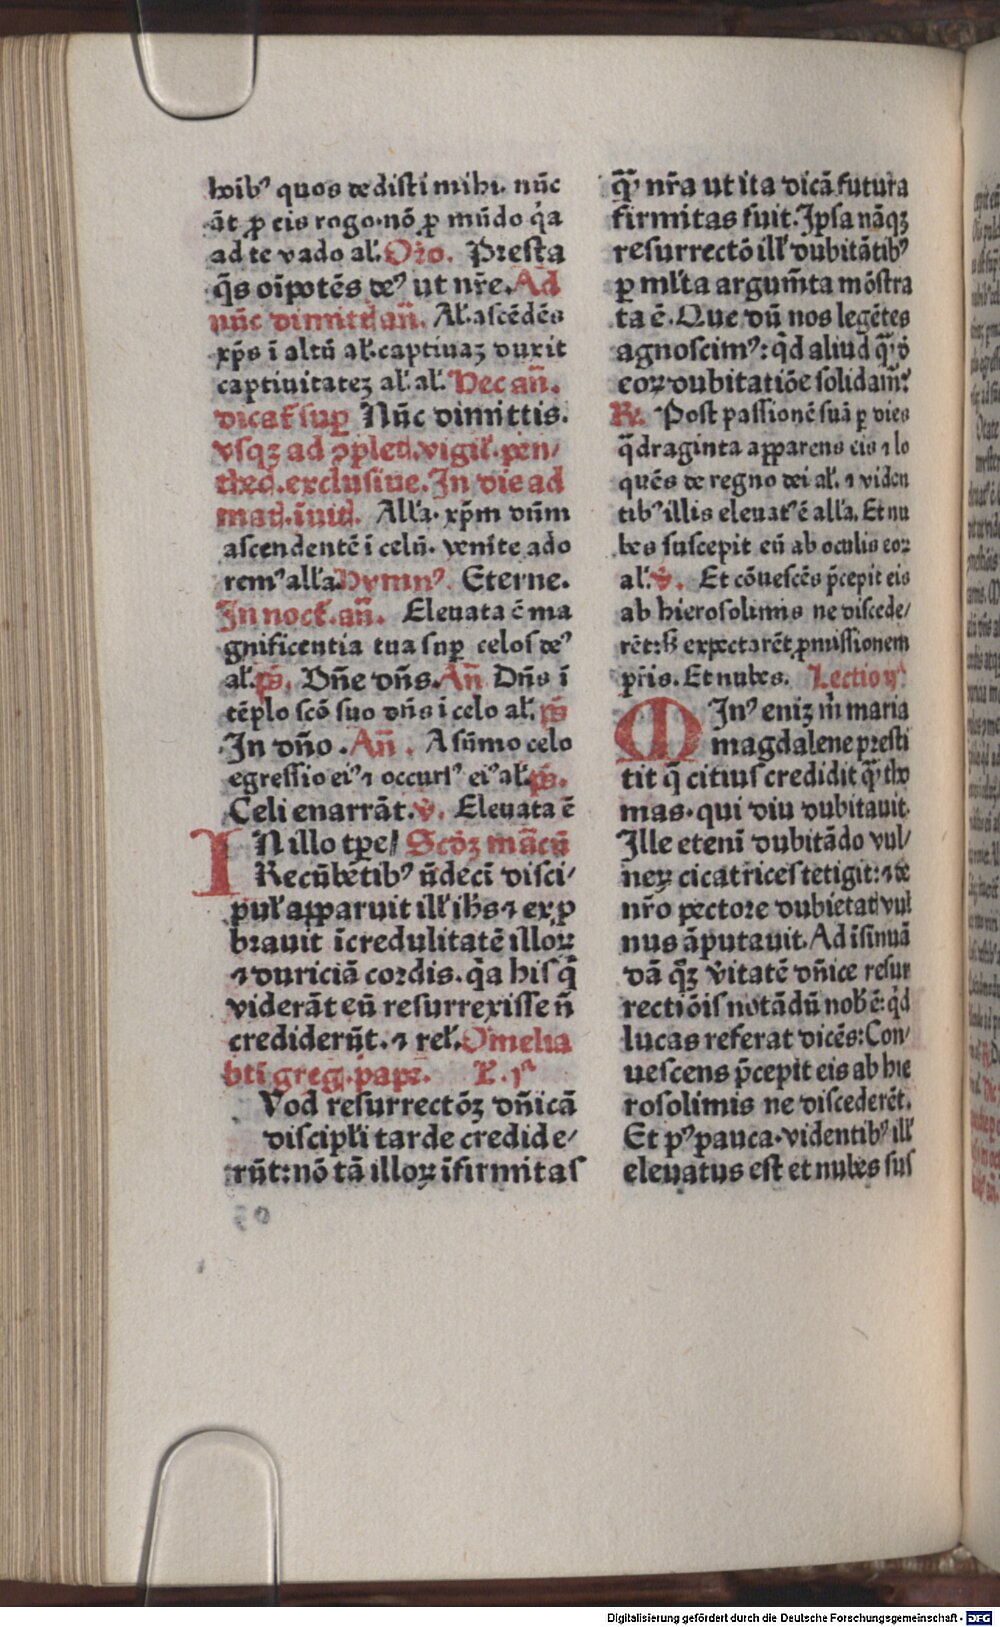 hoibꝰ quos dedisti mihi. nūc
āt ꝓ eis rogo. nō ꝓ mūdo q̄a
ad te vado al̄. Oro. Presta
q̄s oīpotēs deꝰ ut nr̄e. Ad
nūc dimittꝭ an̄. Al̄. ascēdēs
xp̄s ī altū al̄. captiuaꝫ duxit
captiuitateꝫ al̄. al̄. Hec an̄.
dicat᷑ suꝑ Nūc dimittis.
vsqꝫ ad ꝯpletꝭ. vigil̄. pen/
thecꝭ. exclusiue. In die ad
matꝭ. īuitꝭ. All̄a. xp̄m dn̄m
ascendentē ī celū. venite ado
remꝰ all̄a. Hymnꝰ. Eterne.
In noct̄. an̄. Eleuata ē ma
gnificentia tua suꝑ celos deꝰ
al̄. ps̄. Dn̄e dn̄s. An̄ Dn̄s ī
tēplo scō suo dn̄s ī celo al̄. ps̄
In dn̄o. An̄. A sūmo celo
egressio eiꝰ ⁊ occursꝰ eiꝰ al̄. ps̄.
Celi enarrāt. v̄. Eleuata ē
IN illo tꝑe/ Scd̄ꝫ mācū
Recūbētibꝰ ūdecī disci/
pul̄ apparuit ill̄ ih̄s ⁊ exꝓ
brauit īcredulitatē illoꝝ
⁊ duriciā cordis. q̄a his q̄
viderāt eū resurrexisse n̄
crediderūt. ⁊ rel̄. Omelia
bti greg. pape. L. jᵃ
Vod resurrectōꝫ dn̄icā
discipl̄i tarde credide/
rūt: nō tā illoꝝ īfirmitas
q̄ꝫ nr̄a ut ita dicā futura
firmitas fuit. Ipsa nāqꝫ
resurrectō ill̄ dubitātibꝰ
ꝑ ml̄ta argum̄ta mōstra
ta ē. Que dū nos legētes
agnoscimꝰ: q̄d aliud q̄ꝫ d̄
eoꝝ dubitatiōe solidam᷑?
R. Post passionē suā ꝑ dies
q̄draginta apparens eis ⁊ lo
quēs de regno dei al̄. ⁊ viden
tibꝰ illis eleuatꝰ ē all̄a. Et nu
bes suscepit eū ab oculis eoꝝ
al̄. v̄. Et cōuescēs p̄cepit eis
ab hierosolimis ne discede/
rēt: s̄ expectarēt ꝓmissionem
pr̄is. Et nubes. Lectio ijᵃ
MInꝰ enīꝫ m̄ maria
magdalene presti
tit q̄ citius credidit q̄ꝫ tho
mas. qui diu dubitauit.
Ille etenī dubitādo vul/
neꝝ cicatrices tetigit: ⁊ de
nr̄o pectore dubietatꝭ vul
nus āputauit. Ad īsinuā
dā q̄ꝫ v̄itatē dn̄ice resur
rectiōis notādū nob̄ ē: q̄d
lucas referat dicēs: Con/
uescens p̄cepit eis ab hie
rosolimis ne discederēt.
Et pꝰ pauca. videntibꝰ ill̄
eleuatus est et nubes sus
Digitalisierung gefördert durch die Deutsche Forschungsgemeinschaft - DFG